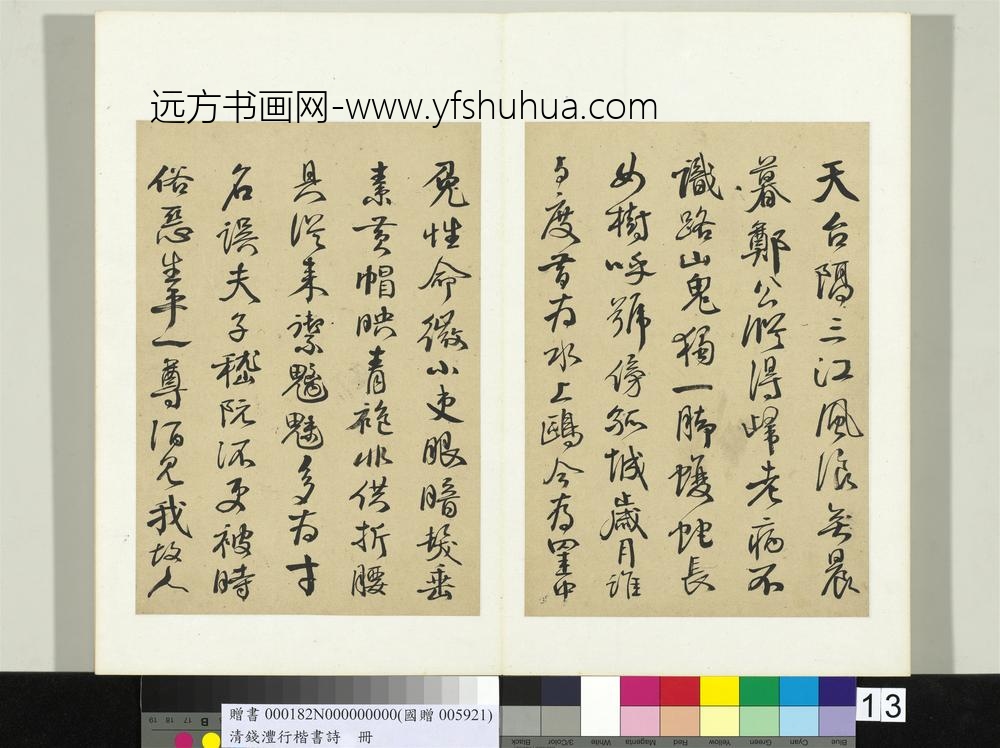 远方书画网-www.yfshuhua.com
天台隔三江風浪無晨
暮鄭公縱得歸老病不
識路山鬼獨一腳蝮蛇長
如樹呼號傍孤城歲月誰
與度昔為水上鷗今為罝中
兔性命
微小吏眼暗髮垂
素黃帽映青袍非供折腰
具從來禦魑魅多為才
名誤夫子嵇阮流更被時
俗惡生平一尊酒見我故人
13
Black
3/Color
White
Magenta
Red
Yellow
Green
Cyan
Blue
19 18 17 16 B
贈書 000182N000000000(國贈 005921)
清錢灃行楷書詩 冊